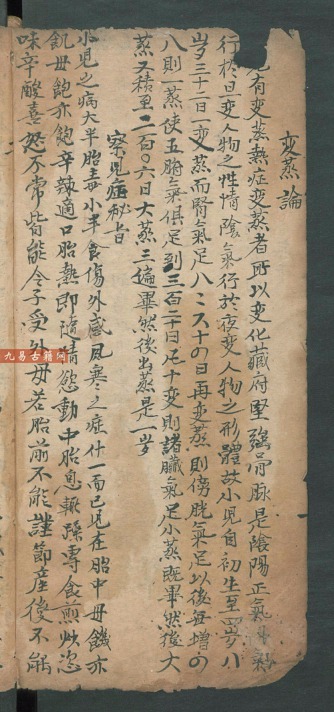 变蒸論
児有变蒸熱症变蒸者所以变化藏府堅强骨脉是陰陽正氣
行於旦变人物之性情陰氣行於夜变人物之形體故小児自初生至一岁八
岁三十二日一变蒸而腎氣足八八六十四日再变蒸則傍胱氣足以後每增
八則一蒸使五腑氣俱足到三百二十日足十变則諸臟氣足小蒸既畢然後大
蒸又積至二百〇六日大蒸三遍畢然後出蒸是一岁
察児症秘旨
小児之病大半胎毒小半食傷外感風寒之症什一而已児在胎中母饑亦
飢母飽亦飽辛辣適口胎熱即隨情慾動中胎息輒躁專食煎炒恣
味辛酸喜怒不常皆能令子受外母若胎前不能謹節産後不能
九易古籍网